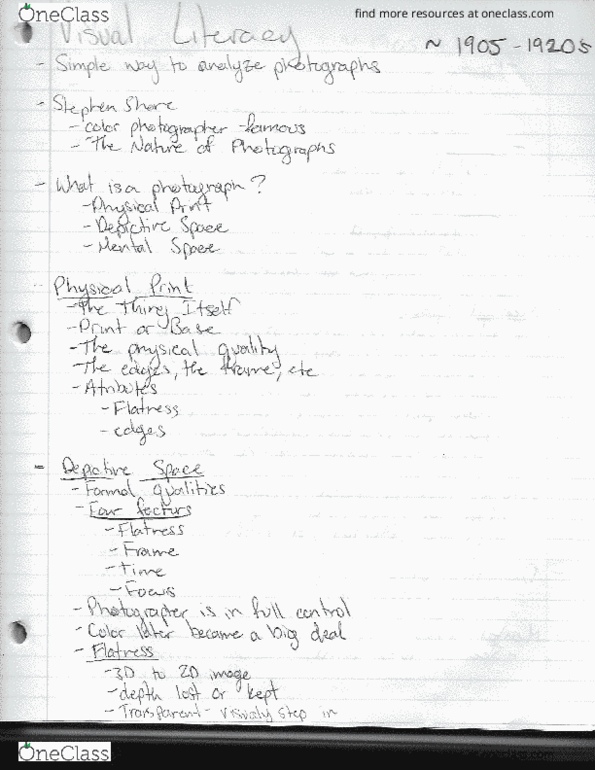 OneClass
find more resources at oneclass.com
Visual Literacy
~ 1905-1920s
- Simple way to analyze photographs
- Stephen Shore
- color photographer famous
- The Nature of Photographs
- What is a photograph?
- Physical Print
- Depictive Space
- Mental Space
Physical Print
- The Thing Itself
- Print or Base
- The physical quality
- The edges, the frame, etc
- Atributes
- Flatness
- edges
- Depictive Space
- Formal qualities
- Four factors
- Flatness
- Frame
- time
- Focus
- Photographer is in full control
- Color later became a big deal
- Flatness
- 3D to 2D image
- depth lost or kept
- Transparent - visualy step in
OneClass
find more resources at oneclass.com